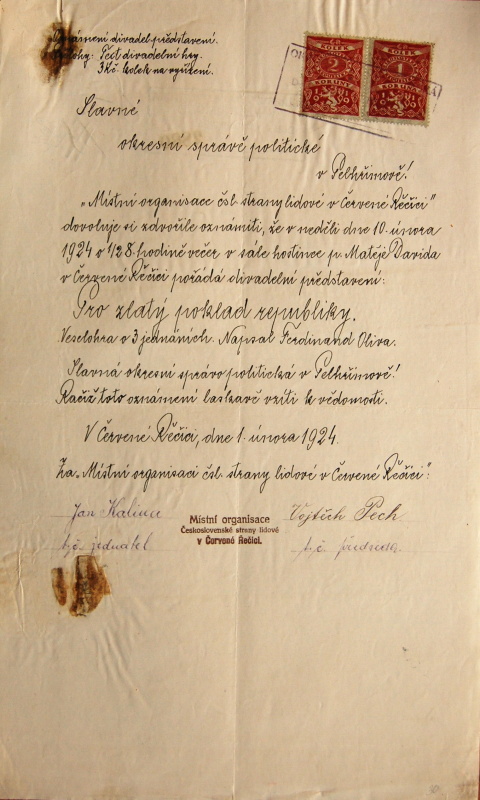 Oznámení divadel. představení.
Přílohy: Text divadelní hry.
3 Kč kolek na vyřízení.
KOLEK
2
KORUNY
KOLEK
1
KORUNA
Slavné
okresní správě politické
v Pelhřimově!
„Místní organisace čsl. strany lidové v Červené Řečici"
dovoluje si zdvořile oznámiti, že v neděli dne 10. února
1924 o 1/2 8. hodině večer v sále hostince p. Matěje Davida
v Červené Řečici pořádá divadelní představení:
Pro zlatý poklad republiky.
Veselohra o 3 jednáních. Napsal Ferdinand Oliva.
Slavná okresní správo politická v Pelhřimově!
Račiž toto oznámení laskavě vzíti k vědomosti.
V Červené Řečici, dne 1. února 1924.
Za „Místní organisaci čsl. strany lidové v Červené Řečici":
Jan Kalina
t. č. jednatel
Místní organisace
Československé strany lidové
v Červené Řečici.
Vojtěch Pech
t. č. předseda